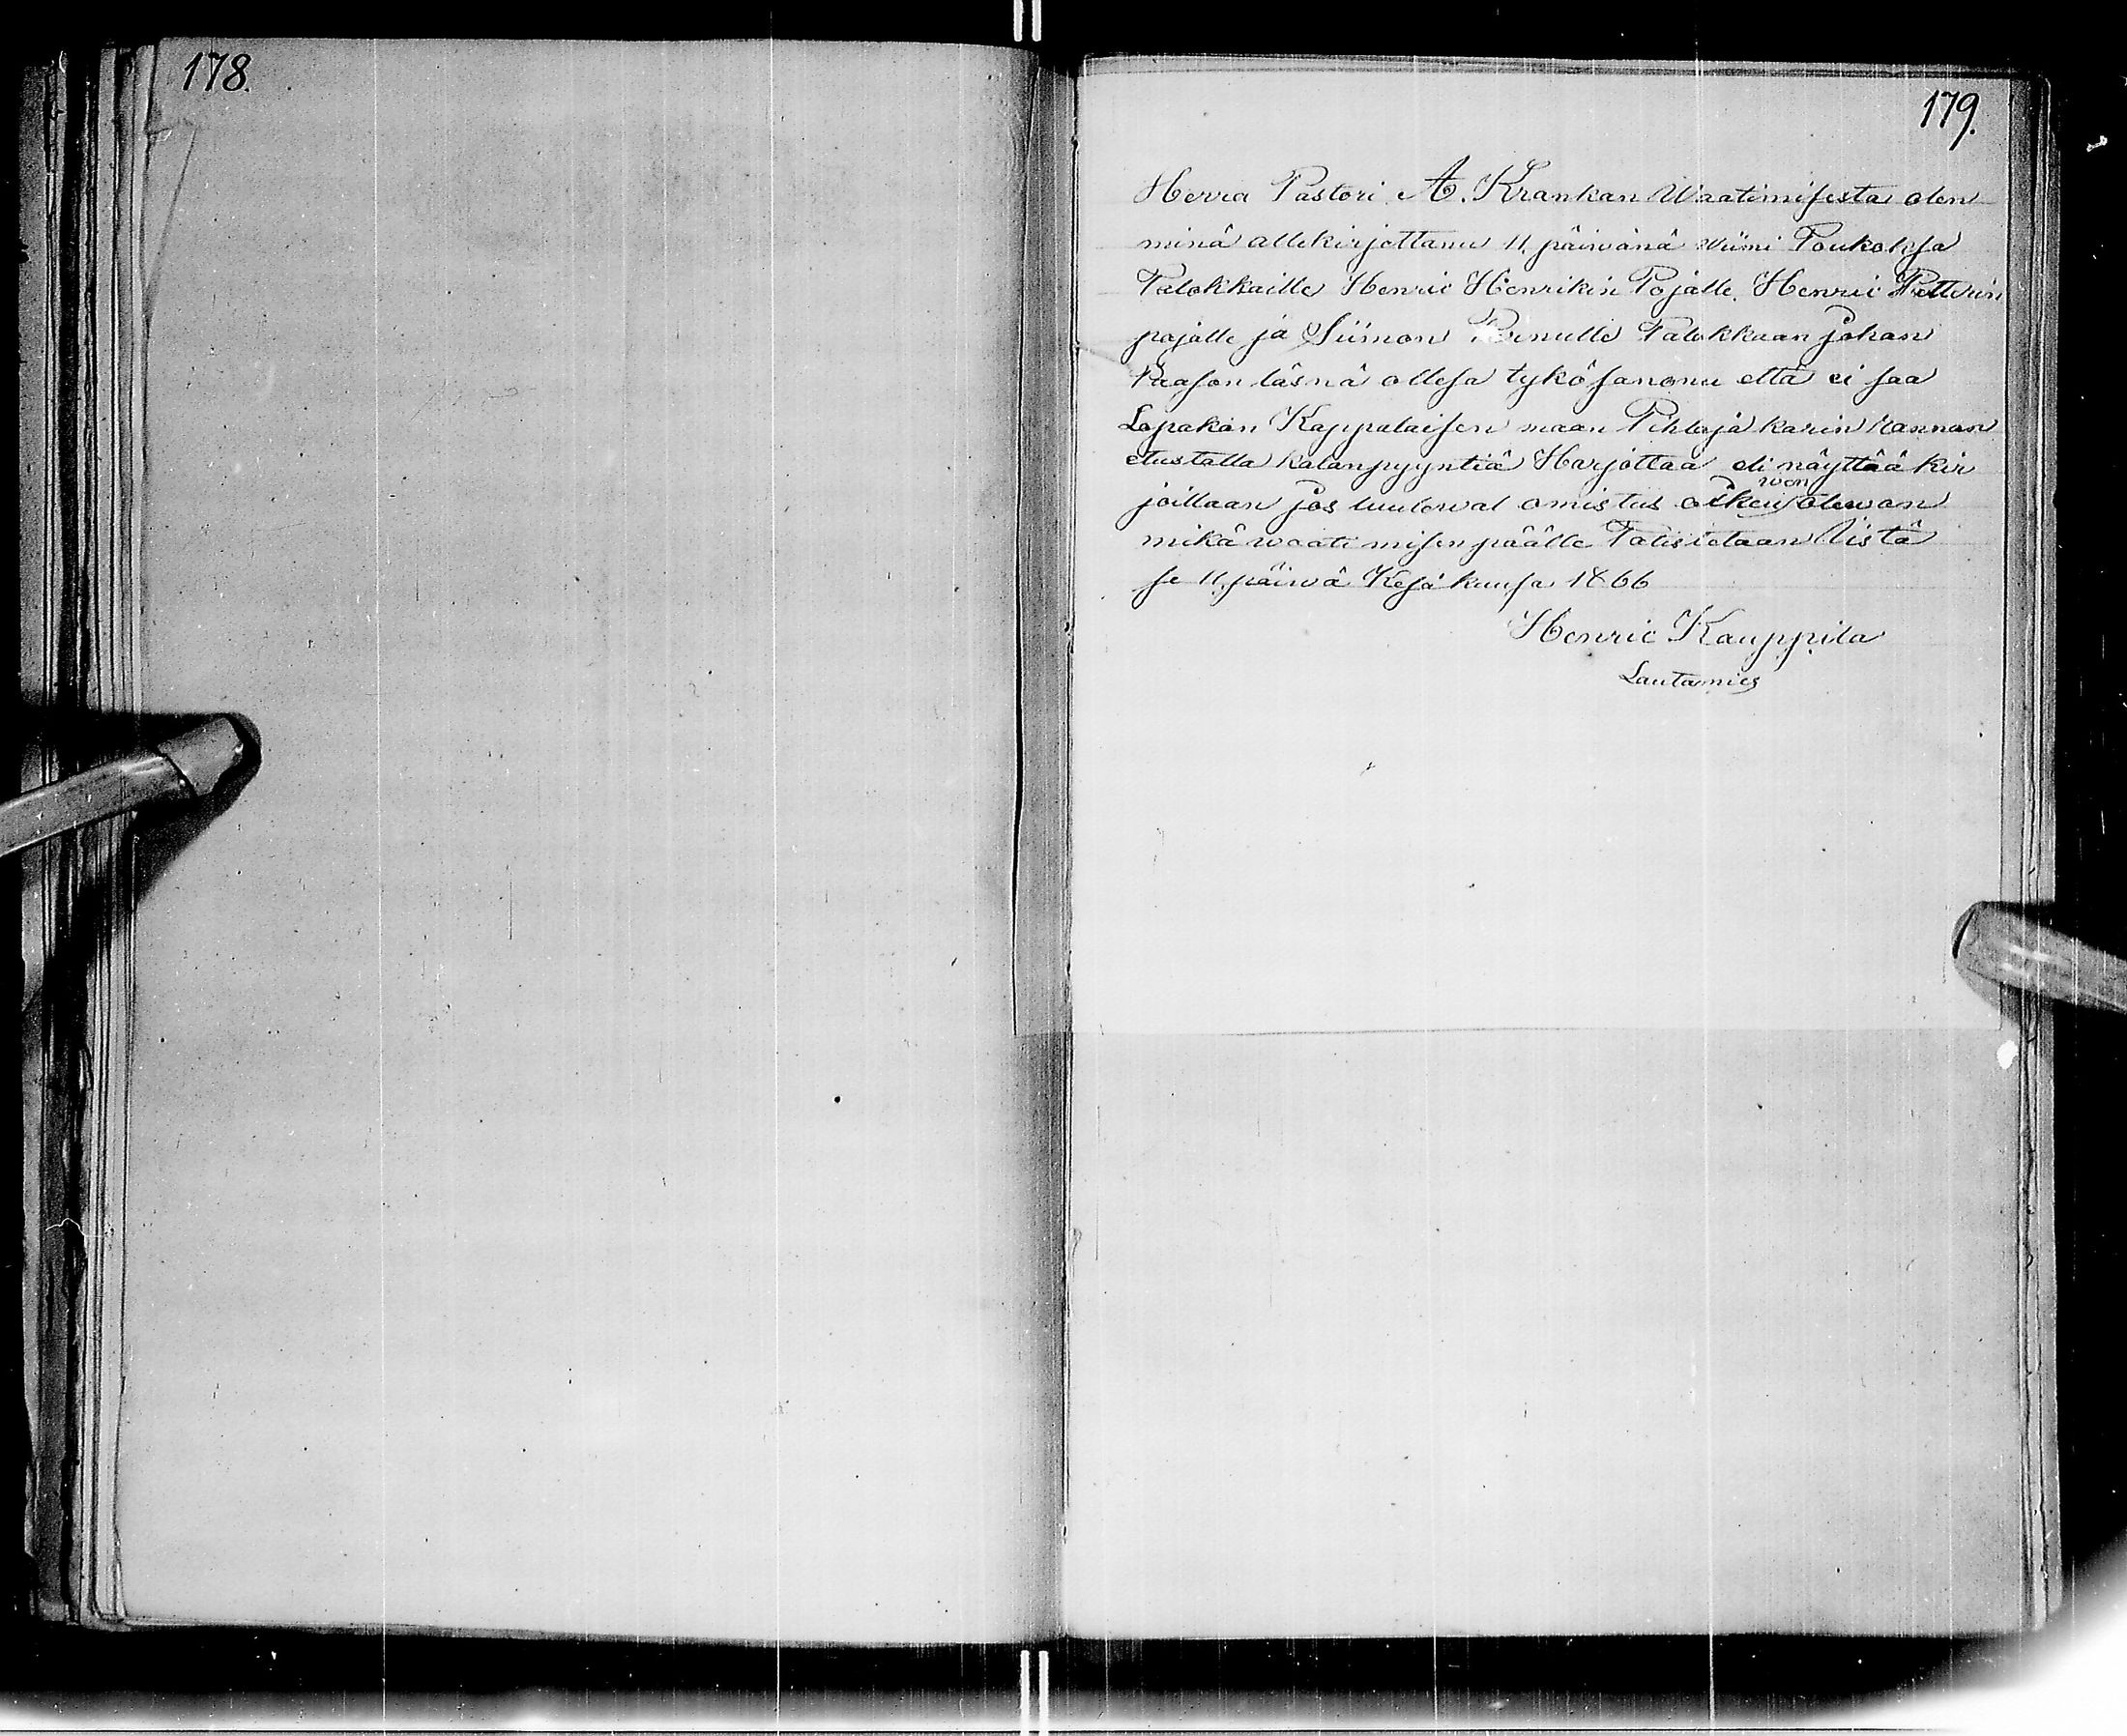 178.
179.
Herra Pastori A. Krankan Waatimisesta olen
minä allekirjottanu 11. päiwänä wiimi Toukok.sa
Talokkaille Henric Henrikin Pojalle, Henric Petterin
pojalle ja Siimon Pernulle Talokkaan Johan
Paason läsnä ollesa tykö sanonu että ei saa
Lapakän Kappalaisen maan Pihlaja karin Rannan
etustalla kalanpyyntiä Harjottaa eli näyttää kir
joillaan jos luulewat omistus oikeu won olewan
mikä waatimisen päälle Tatisietaan Iistä
se 11. päiwä Kesäkuusa 1866
Henric Kauppila
Lautamies